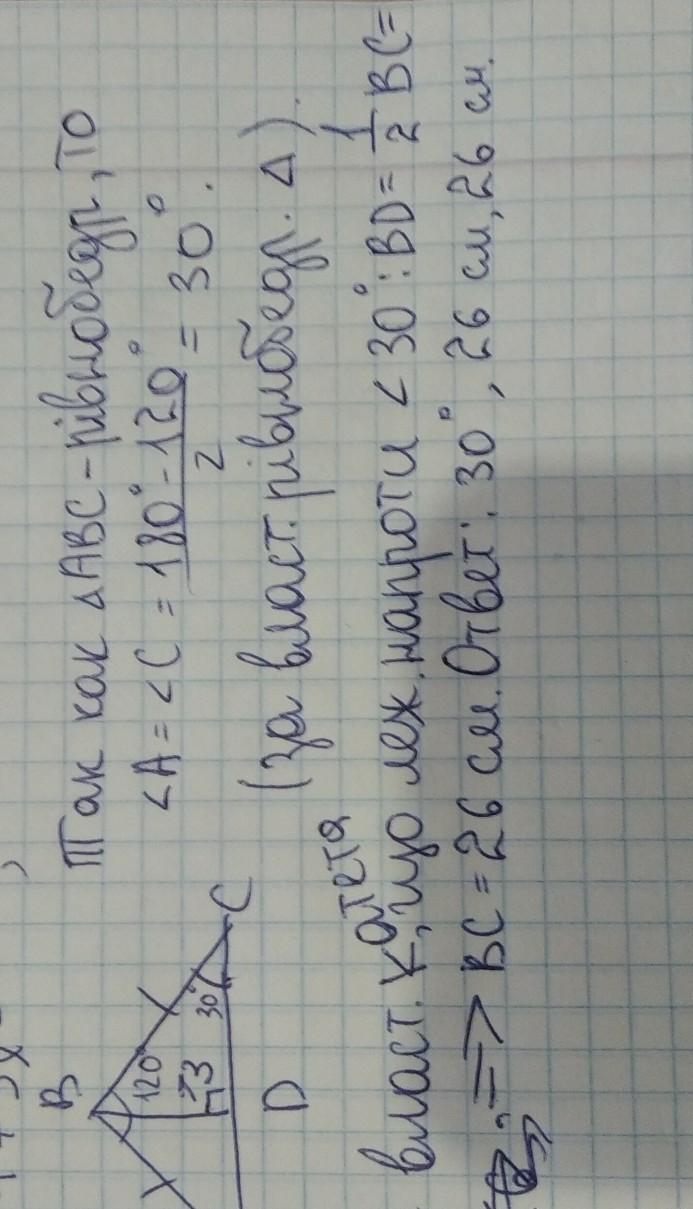 Так как ΔABC – рівнобедр., то
∠A = ∠C = (180° - 120°)/2 = 30°.
(за власт. рівнобедр. Δ).
B
120°
13
30°
C
D
власт. катета, що леж. напроти < 30°: BD = 1/2 BC =
=> BC = 26 см. Ответ: 30°, 26 см, 26 см.